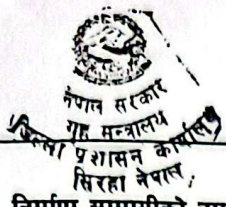 नेपाल सरकार
गृह मन्त्रालय
जिल्ला प्रशासन कार्यालय
सिरहा नेपाल
निर्माण